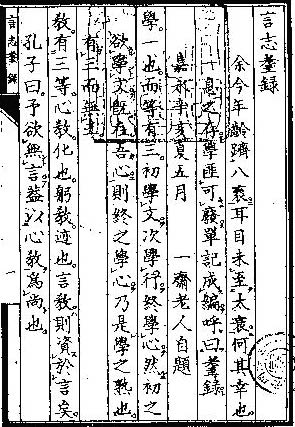 言志耋録
余今年齡躋八秩耳目未至太衰何其幸也
一息之存學匪可廢單記成編呼曰耋錄
嘉永辛亥夏五月　一齋老人自題
學一也而等有三初學文次學行終學心然初之
欲學文既在吾心則終之學心乃是學之熟也
有三而無三
教有三等心教化也躬教迹也言教則資於言矣
孔子曰予欲無言蓋以心教為尚也
言志耋錄
一